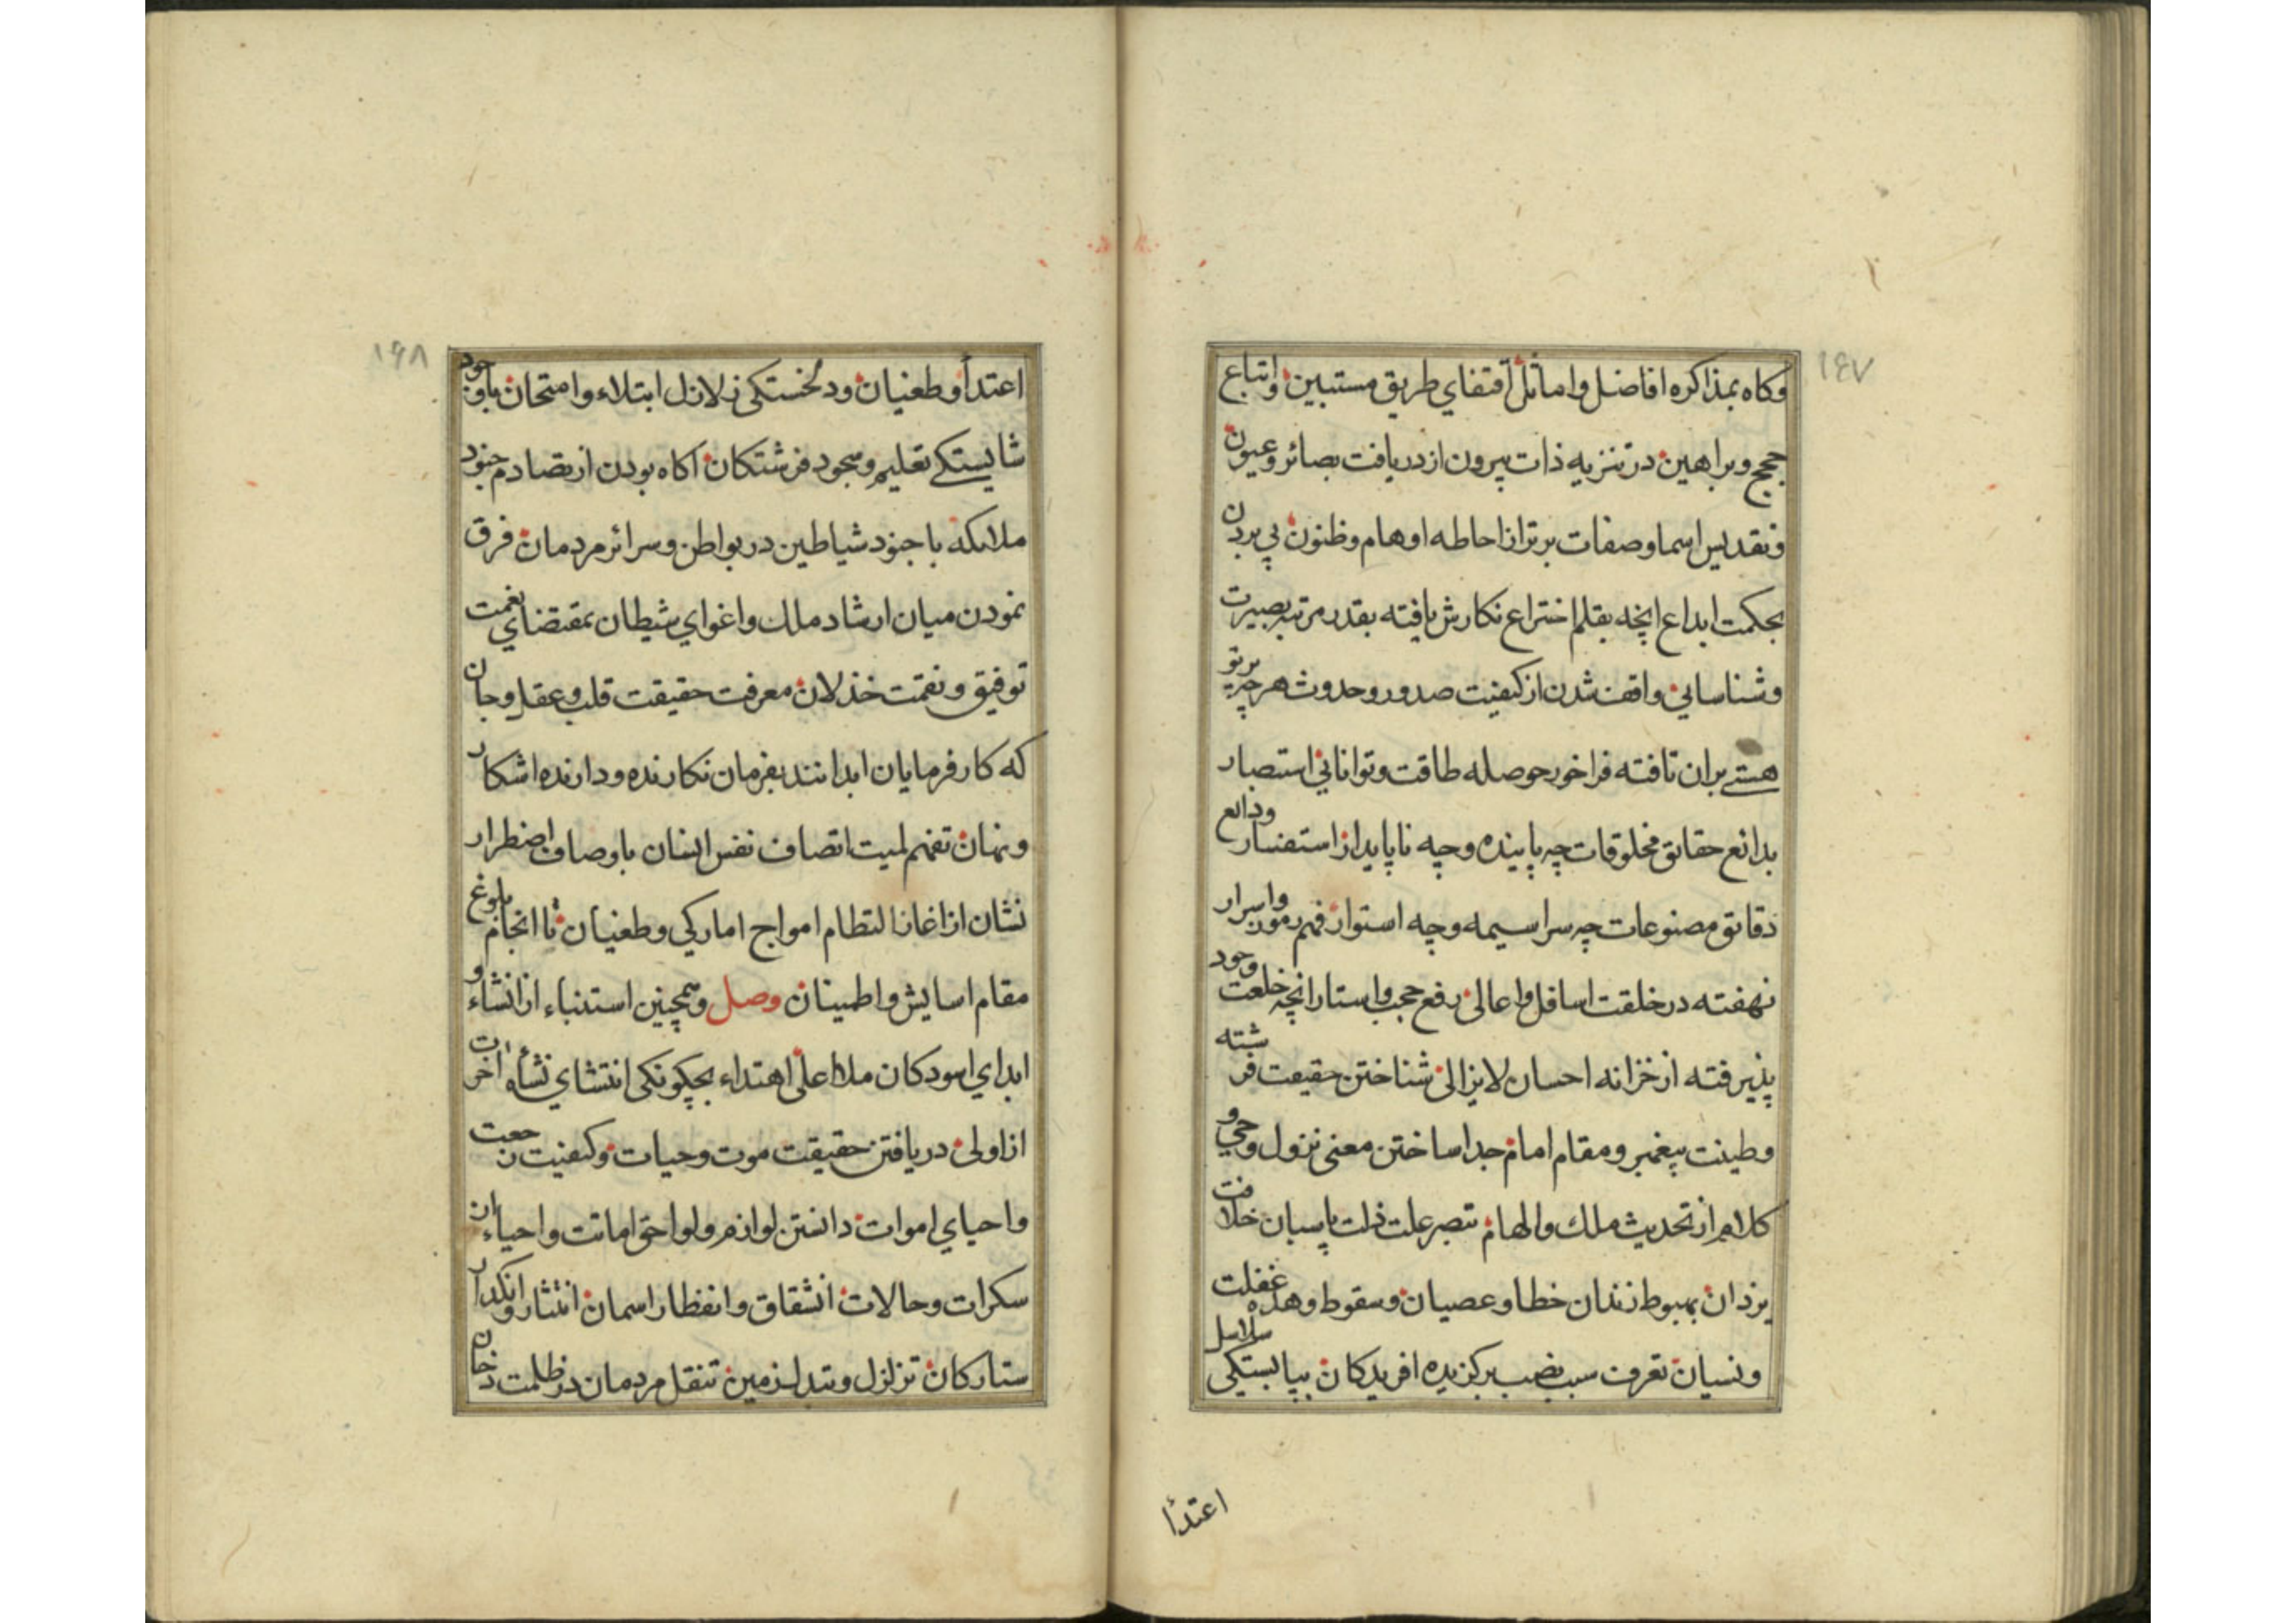 ١٤٧
وكاه بمذاكره افاضل واماثل اقتفاي طريق مستبين واتباع
حجج وبراهين در تنزيه ذات بيرون از دريافت بصائر وعيون
وتقديس اسما وصفات برتر از احاطه اوهام وظنون پي بردن
بحكمت ابداع انچه بقلم اختراع نكارش يافته بقدر مرتبه بصيرت
وشناسايي واقف شدن از كيفيت صدور وحدوث هرچه پرتو
هستي بران تافته فراخور حوصله طاقت وتوانايي استبصار
بدائع حقائق مخلوقات چه پاينده وچه ناپايدار استفسار ودائع
دقائق مصنوعات چه سراسيمه وچه استوار فهم رموز واسرار
نهفته در خلقت اسافل واعالى رفع حجب واستار انچه خلعت وجود
پذيرفته از خزانه احسان لايزالى شناختن حقيقت فرشته
وطينت پيغمبر ومقام امام جدا ساختن معنى نزول وحي و
كلام از تحديث ملك والهام تبصر علت ذلت پاسبان خلافت
يزدان بهبوط زندان خطا وعصيان وسقوط وهده غفلت
ونسيان تعرف سبب نصب بركزيده افريدكان بپابستكي سلاسل
اعتدأ
١۴٨
اعتدأ وطغيان ودلخستكى زلازل ابتلاء وامتحان باوجود
شايستكے تعليم وسجود فرشتكان اكاه بودن از تصادم جنود
ملائكه با جنود شياطين در بواطن وسرائر مردمان فرق
نمودن ميان ارشاد ملك واغواي شيطان بمقتضاي نعمت
توفيق ونقمت خذلان معرفت حقيقت قلب وعقل وجان
كه كارفرمايان ابدانند بفرمان نكارنده ودارنده اشكار
ونهان تفهم لميت اتصاف نفس انسان باوصاف اضطرار
نشان از اغاز التطام امواج اماركي وطغيان تا انجام بلوغ
مقام اسايش واطمينان وصل وهمچنين استنباء از انشاء و
ابداي اسودكان ملا اعلى اهتداء بچكونكى انتشاي نشأه اخرت
از اولى دريافتن حقيقت موت وحيات وكيفيت رجعت
واحياي اموات دانستن لوازم ولواحق اماتت واحياء ان
سكرات وحالات انشقاق وانفطار اسمان انتثار وانكدار
ستاركان تزلزل وتبدل زمين تنقل مردمان در ظلمت دخان